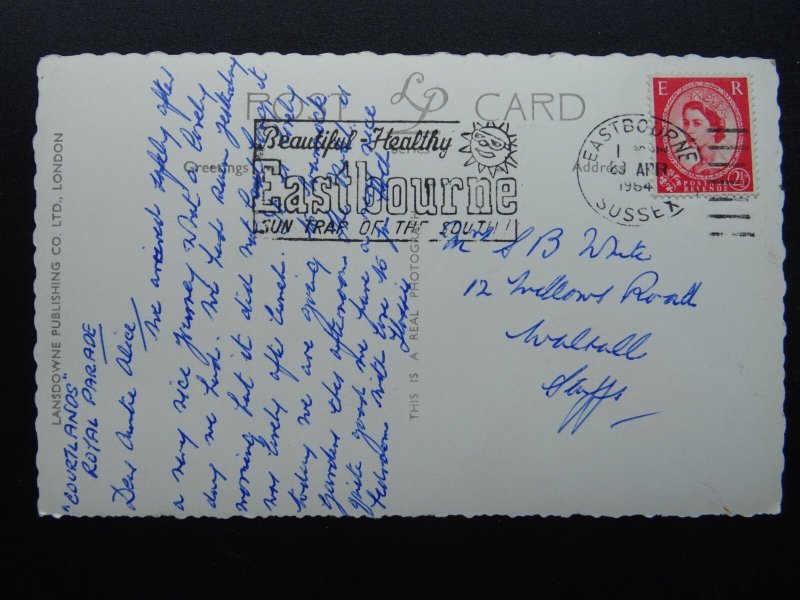 POST CARD
LP
Greetings
Series
Address
Beautiful Healthy
Eastbourne
SUN TRAP OF THE SOUTH!
EASTBOURNE
APR
1964
SUSSEX
E R
POSTAGE
REVENUE
2½
LANSDOWNE PUBLISHING CO. LTD., LONDON
THIS IS A REAL PHOTOGRAPH
"COURTLANDS"
ROYAL PARADE
Dear Auntie Alice,
We arrived safely after
a very nice journey. What a lovely
day we had. We had rain yesterday
morning but it did not last & it
was lovely after lunch.
today we are going
gardens this afternoon. The hotel is
quite good we have a nice
bedroom with love to you both
Gladys
S B White
12 Willows Road
Walsall
Staffs